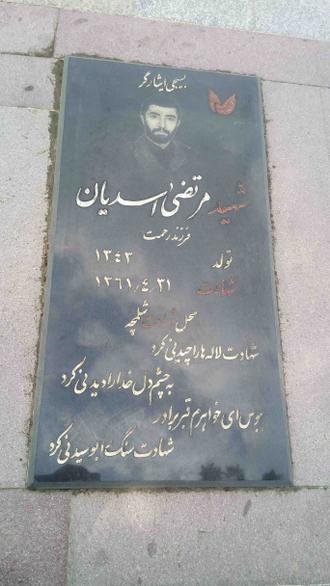 بسیجی ایثارگر
شهید مرتضی اسدیان
فرزند رحمت
تولد ۱۳۴۳
شهادت ۱۳۶۱/۴/۳۱
محل شهادت شلمچه
شهادت لاله ها را چیدنی کرد
به چشم دل خدا را دیدنی کرد
ببوس ای خواهرم قبر برادر
شهادت سنگ را بوسیدنی کرد